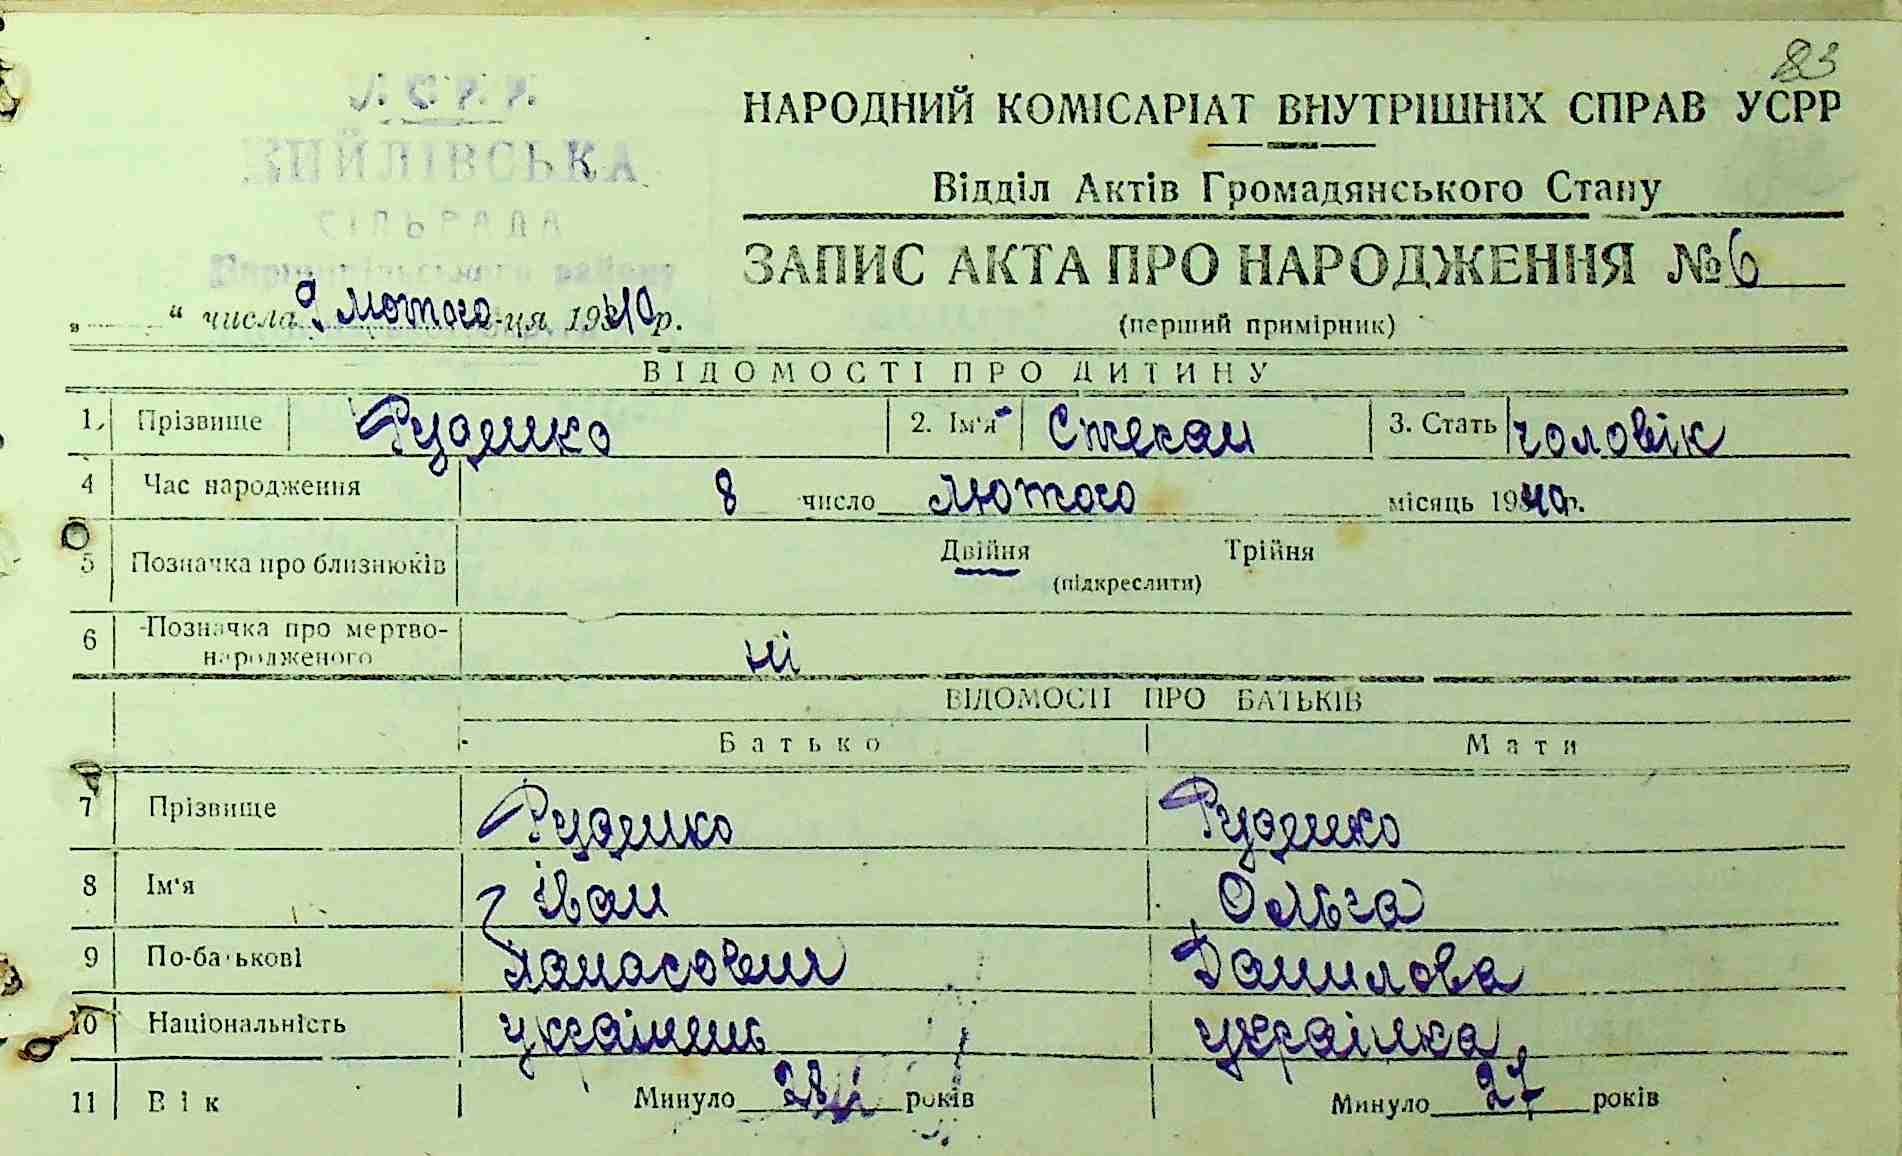 83
У. С. Р. Р.
КИЙЛІВСЬКА
СІЛЬРАДА
Бориспільського району
НАРОДНИЙ КОМІСАРІАТ ВНУТРІШНІХ СПРАВ УСРР
Відділ Актів Громадянського Стану
ЗАПИС АКТА ПРО НАРОДЖЕННЯ № 6
„ “ числа 9 лютого м-ця 1940 р.
(перший примірник)
ВІДОМОСТІ ПРО ДИТИНУ
1. Прізвище Руденко 2. Ім'я Степан 3. Стать чоловік
4 Час народження 8 число лютого місяць 1940 р.
5 Позначка про близнюків Двійня Трійня
(підкреслити)
6 Позначка про мертво-
народженого ні
ВІДОМОСТІ ПРО БАТЬКІВ
Батько Мати
7 Прізвище Руденко Руденко
8 Ім'я Іван Ольга
9 По-батькові Панасович Данилова
10 Національність українець українка
11 Вік Минуло 28 років Минуло 27 років